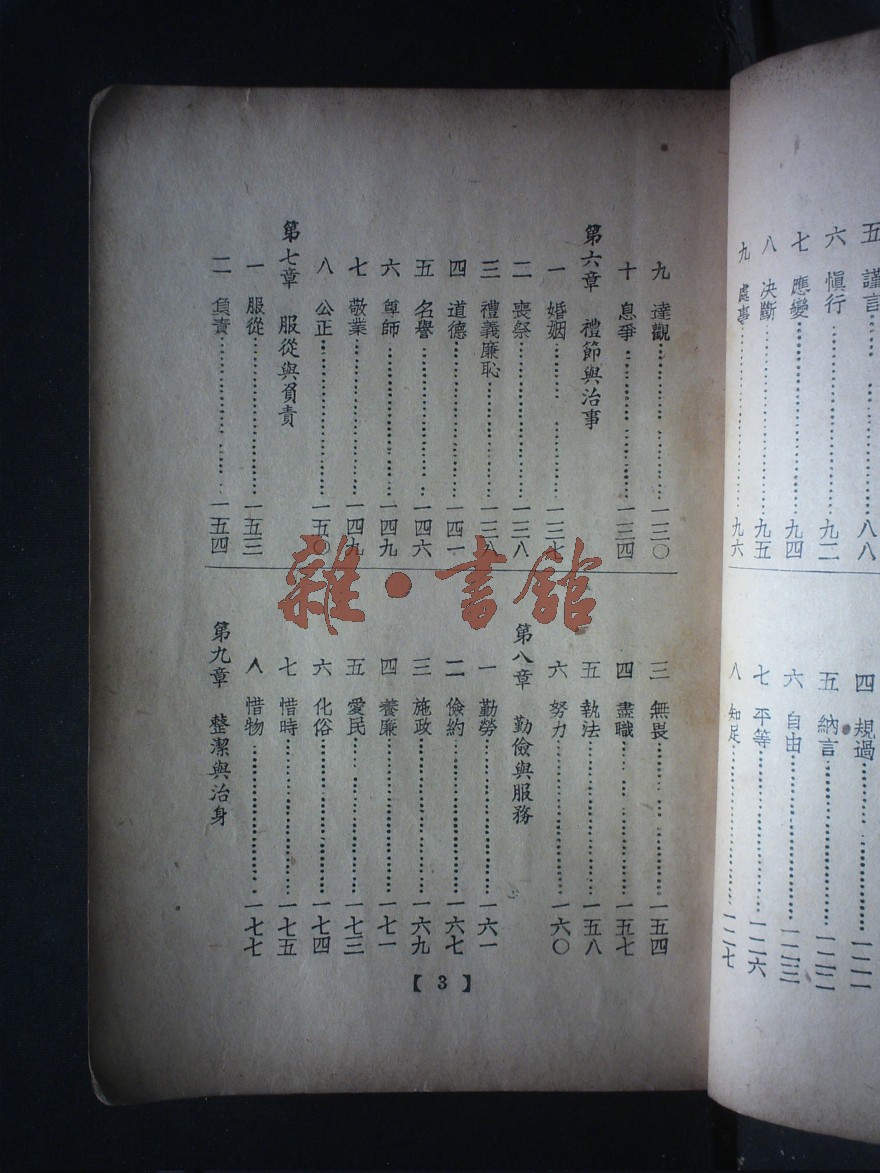 五 謹言……八八
六 愼行……九二
七 應變……九四
八 决斷……九五
九 處事……九六
四 規過……一二一
五 納言……一二二
六 自由……一二三
七 平等……一二六
八 知足……一二七
九 達觀……一三〇
十 息爭……一三四
第六章 禮節與治事
一 婚姻……一三七
二 喪祭……一三八
三 禮義廉恥……一三八
四 道德……一四一
五 名譽……一四六
六 尊師……一四九
七 敬業……一四九
八 公正……一五〇
第七章 服從與負責
一 服從……一五三
二 負責……一五四
三 無畏……一五四
四 盡職……一五七
五 執法……一五八
六 努力……一六〇
第八章 勤儉與服務
一 勤勞……一六一
二 儉約……一六七
三 施政……一六九
四 養廉……一七一
五 愛民……一七三
六 化俗……一七四
七 惜時……一七五
八 惜物……一七七
第九章 整潔與治身
【3】
雜·書館